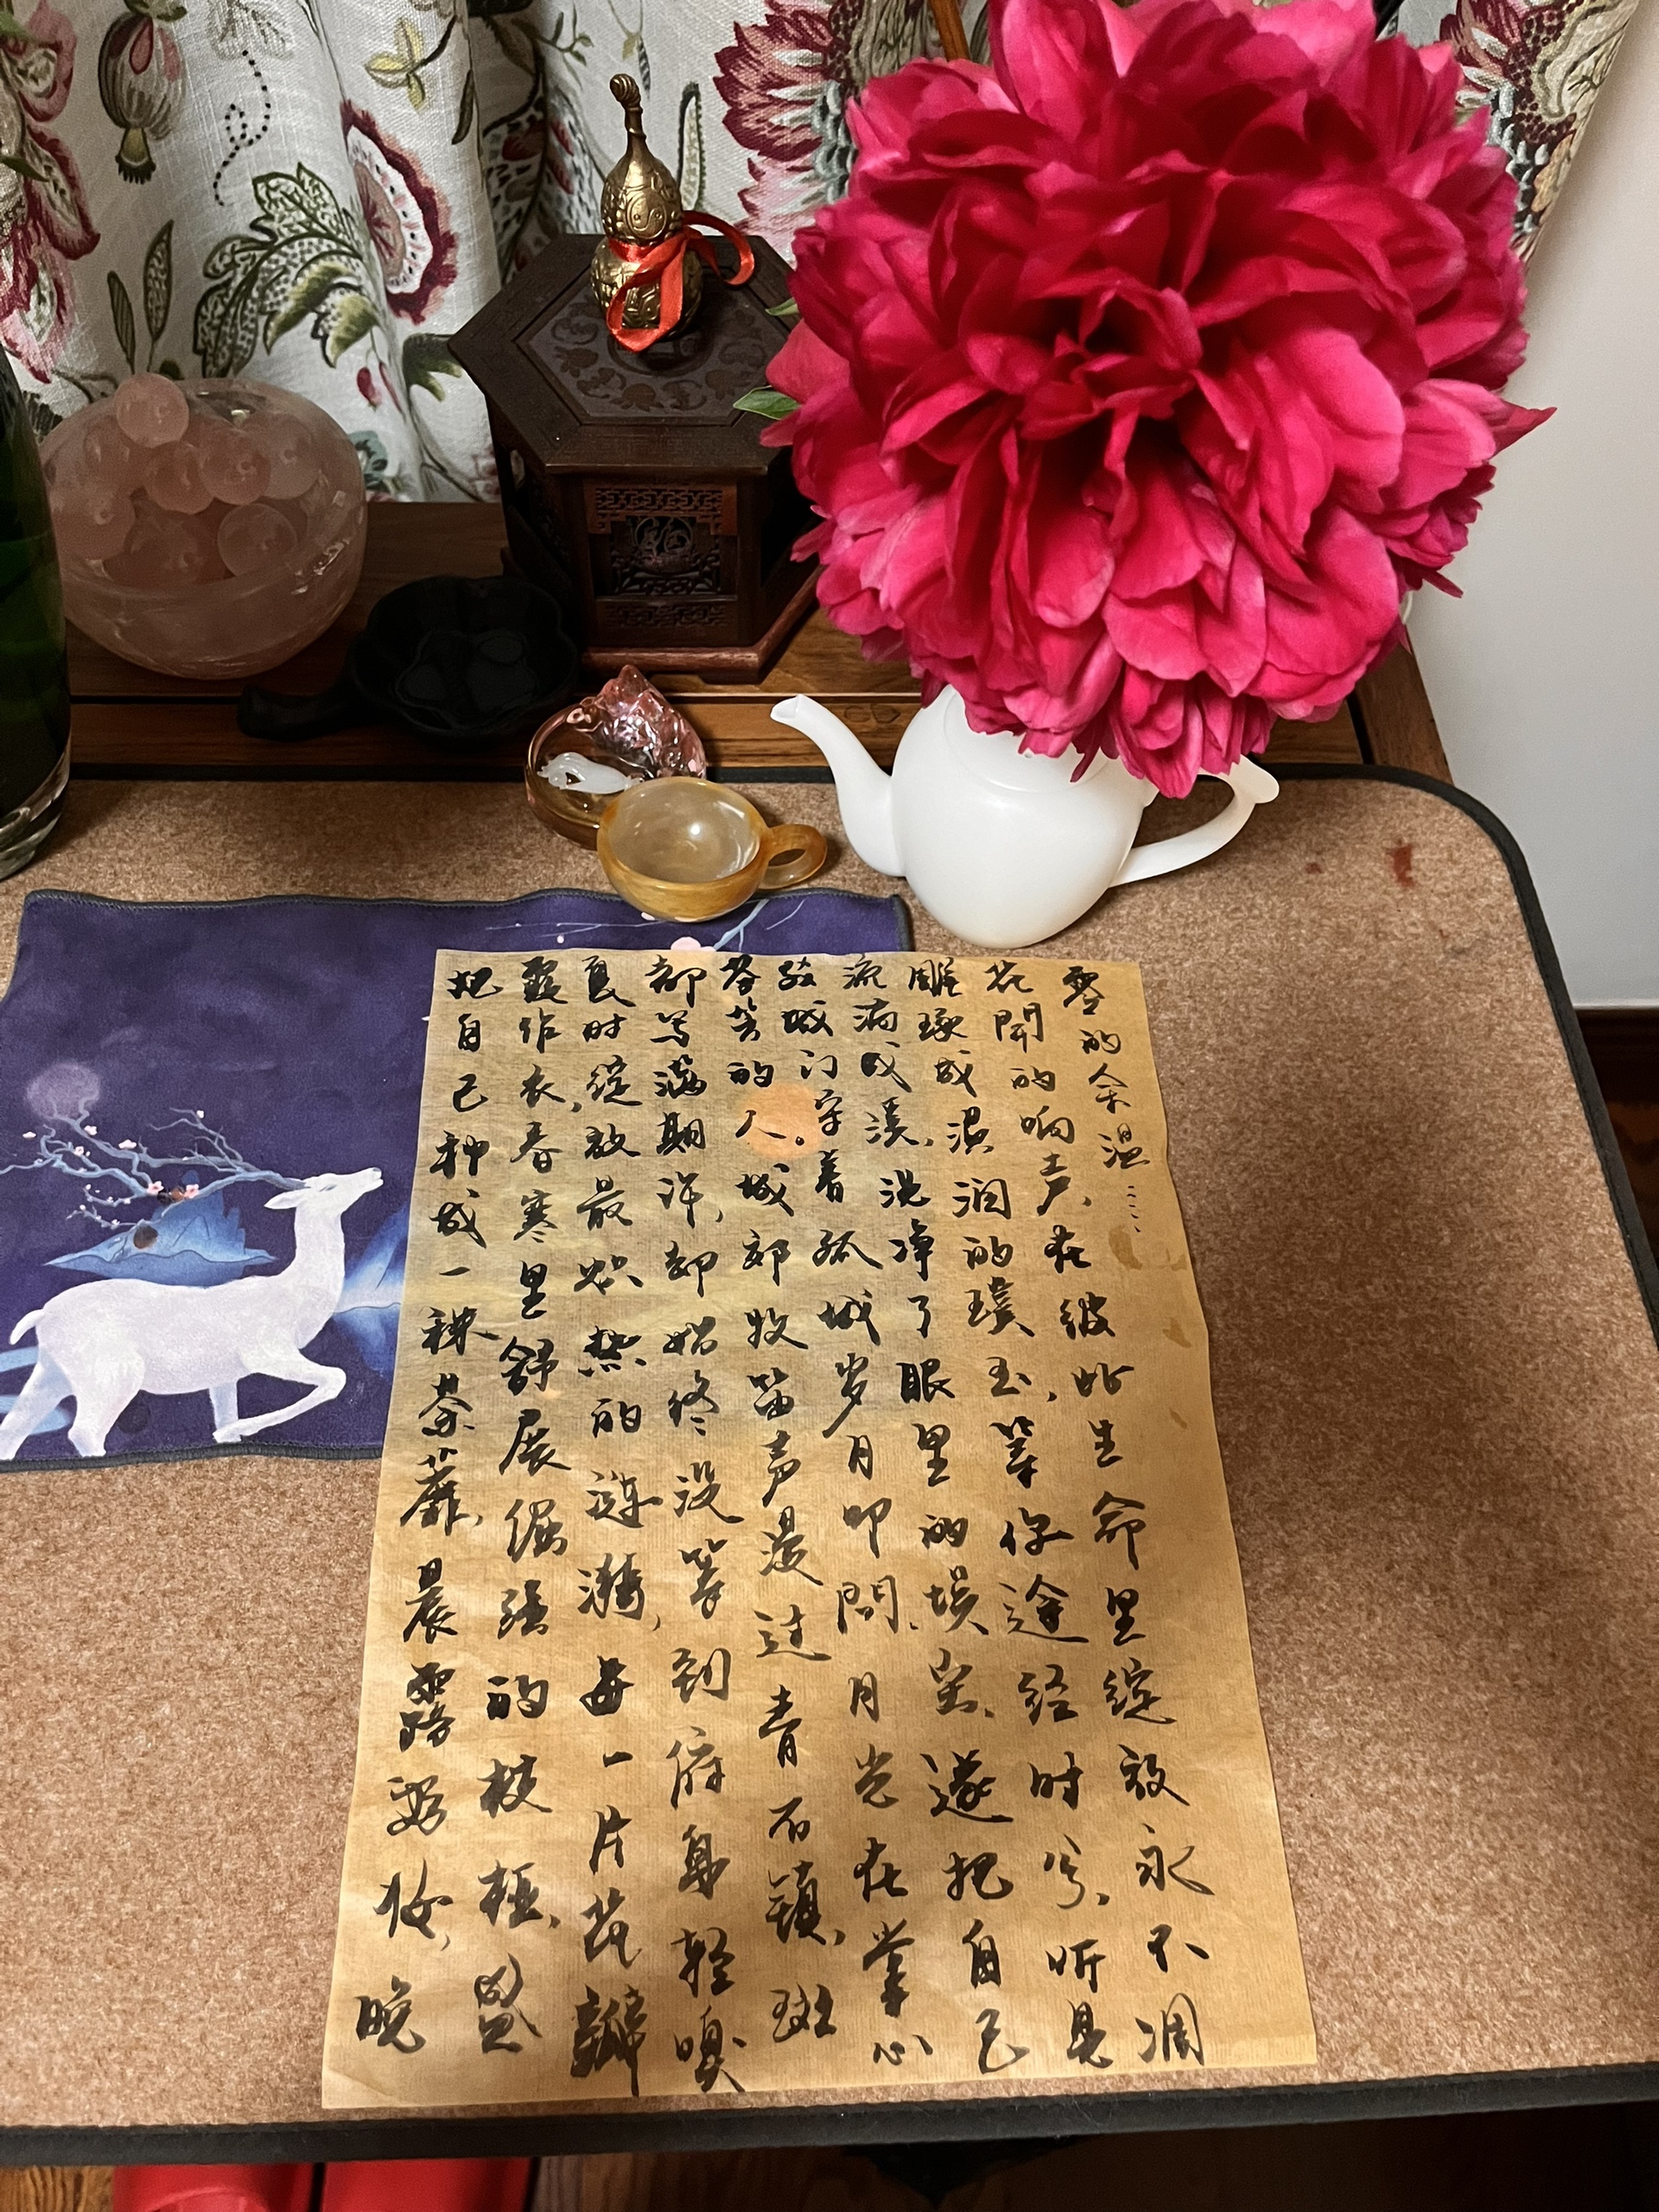 把自己种成一株荼蘼,晨露为妆,晚
霞作衣,春寒里舒展倔强的枝桠,盛
夏时绽放最炽热的涟漪,每一片花瓣
都写满期许,却始终没等到俯身轻嗅
芬芳的人。城郊牧笛声漫过青石镇,斑
驳城门守着孤城岁月叩問,月光在掌心
流淌成溪,洗净了眼里的埃尘,遂把自己
雕琢成温润的璞玉,等你途经时分,听見
花開的响声,在彼此生命里绽放永不凋
零的余温……